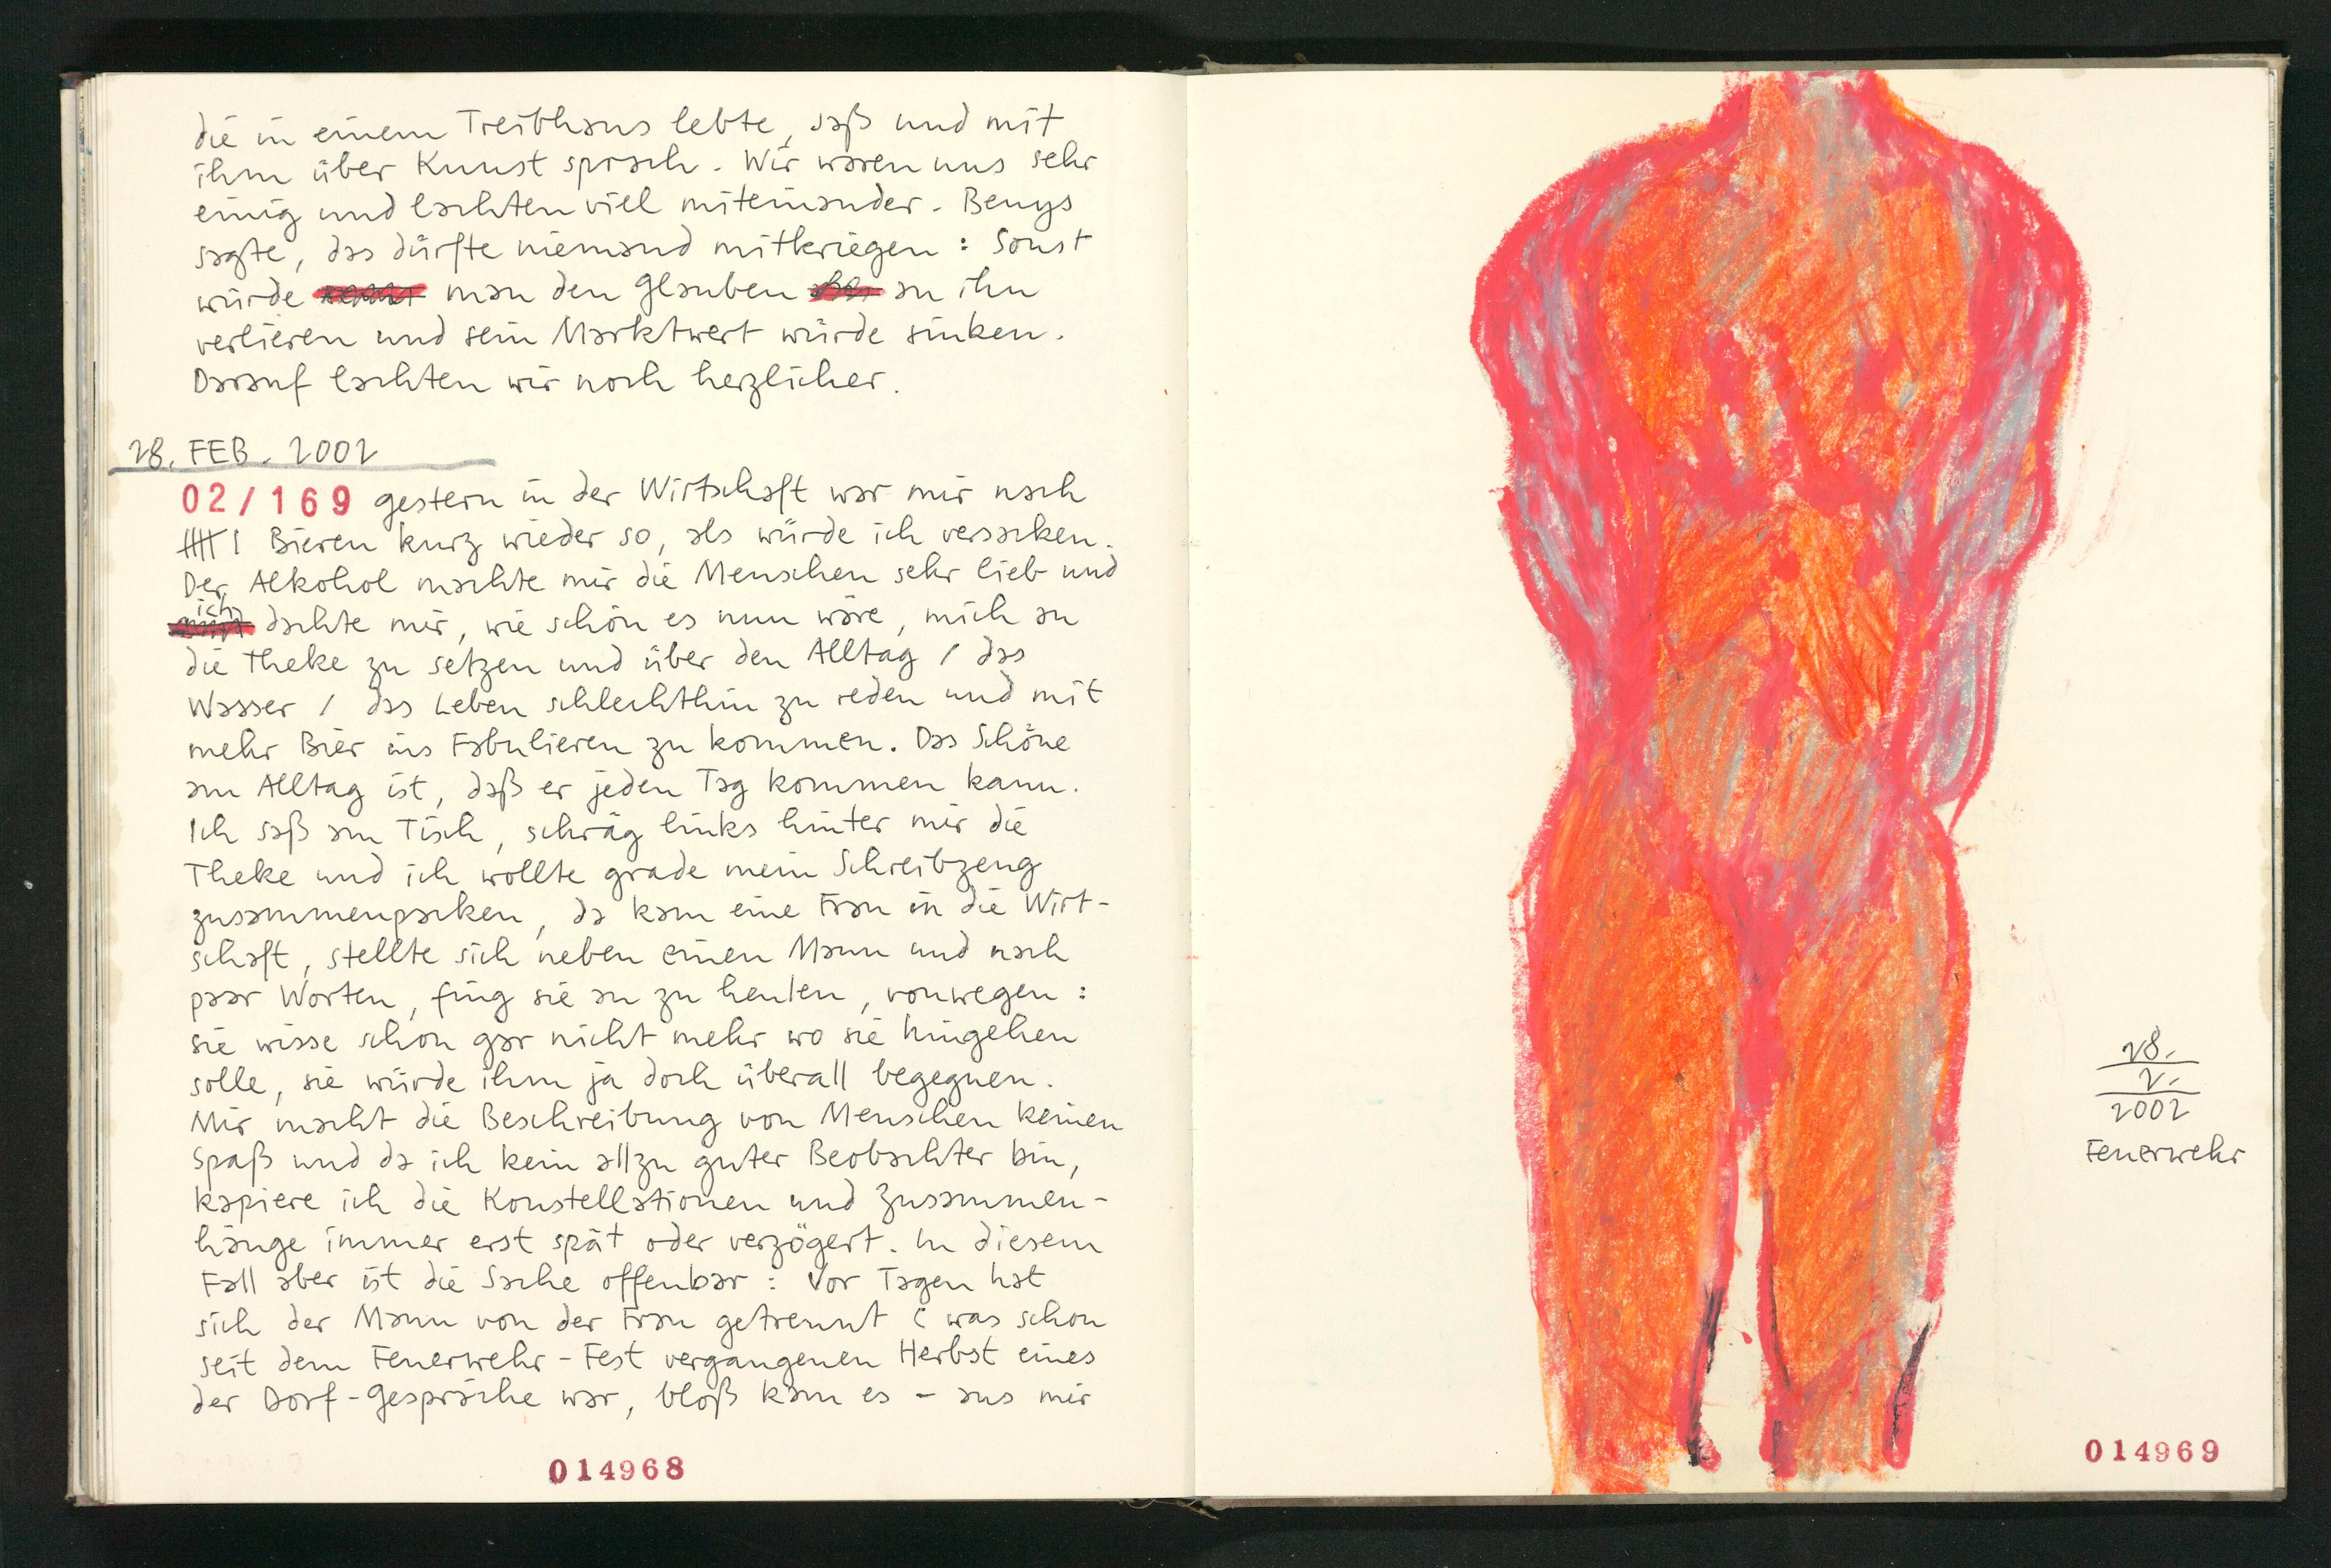 die in einem Treibhaus lebte, saß und mit
ihm über Kunst sprach. Wir waren uns sehr
einig und lachten viel miteinander. Beuys
sagte, das dürfte niemand mitkriegen: Sonst
würde man den Glauben an ihn
verlieren und sein Marktwert würde sinken.
Darauf lachten wir noch herzlicher.
28. FEB. 2002
02/169 gestern in der Wirtschaft war mir nach
~~||||~~ | Bieren kurz wieder so, als würde ich versacken.
Der Alkohol machte mir die Menschen sehr lieb und
ich dachte mir, wie schön es nun wäre, mich an
die Theke zu setzen und über den Alltag / das
Wasser / das Leben schlechthin zu reden und mit
mehr Bier ins Fabulieren zu kommen. Das Schöne
am Alltag ist, daß er jeden Tag kommen kann.
Ich saß am Tisch, schräg links hinter mir die
Theke und ich wollte grade mein Schreibzeug
zusammenpacken, da kam eine Frau in die Wirt-
schaft, stellte sich neben einen Mann und nach
paar Worten, fing sie an zu heulen, vonwegen:
sie wisse schon gar nicht mehr wo sie hingehen
solle, sie würde ihm ja doch überall begegnen.
Mir macht die Beschreibung von Menschen keinen
Spaß und da ich kein allzu guter Beobachter bin,
kapiere ich die Konstellationen und Zusammen-
hänge immer erst spät oder verzögert. In diesem
Fall aber ist die Sache offenbar: Vor Tagen hat
sich der Mann von der Frau getrennt (was schon
seit dem Feuerwehr-Fest vergangenen Herbst eines
der Dorf-Gespräche war, bloß kam es - aus mir
014968
28.
2.
2002
Feuerwehr
014969